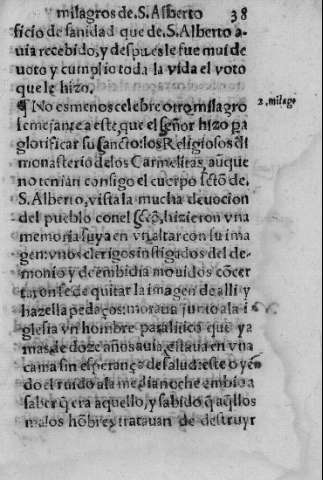 milagros de. S. Alberto 38
ficio de sanidad que de. S. Alberto a-
uia recebido, y despues le fue mui de
uoto y cumplio toda la vida el voto
que le hizo.
¶ No es menos celebre otro milagro
semejante a este que el señor hizo pa
glorificar su sancto: los Religiosos đl
monasterio de los Carmelitas, aũque
no tenian consigo el cuerpo scto de.
S. Alberto, vista la mucha deuocion
del pueblo con el scto, hizieron vna
memoria suya en vn altar con su ima
gen: vnos clerigos instigados del de-
monio y de embidia mouidos cõcer
taron se de quitar la imagen de alli y
hazella pedaços: moraua junto a la i-
glesia vn hombre paralitico que ya
mas de doze años auia, estaua en vna
cama sin esperança de salud: este oyẽ-
do el ruido a la media noche embio a
saber q̃ era aquello, y sabido q̃ aq̃llos
malos hõbres tratauan de destruyr
2. milagr